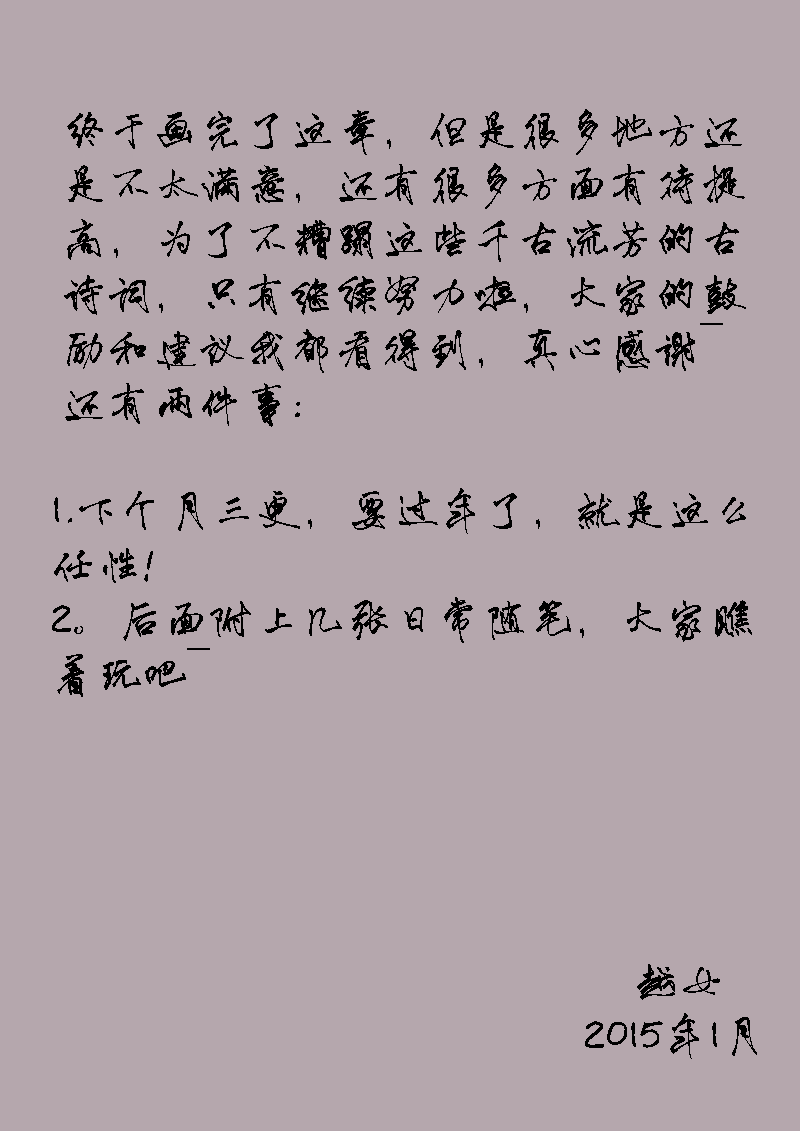 终于画完了这章，但是很多地方还
是不太满意，还有很多方面有待提
高，为了不糟蹋这些千古流芳的古
诗词，只有继续努力啦，大家的鼓
励和建议我都看得到，真心感谢
还有两件事：
1.下个月三更，要过年了，就是这么
任性！
2。后面附上几张日常随笔，大家瞧
着玩吧
越女
2015年1月